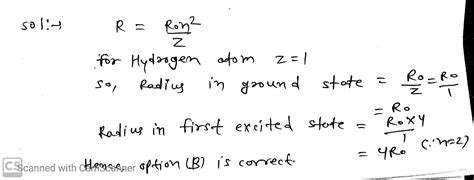 sol:→ R = R₀n²/Z
for Hydrogen atom z=1
so, Radius in ground state = R₀/Z = R₀/1
= R₀
Radius in first excited state = R₀×4/1
= 4R₀ (∵n=2)
Hence, option (B) is correct.
CS Scanned with CamScanner